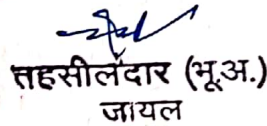 तहसीलदार (भू.अ.)
जायल